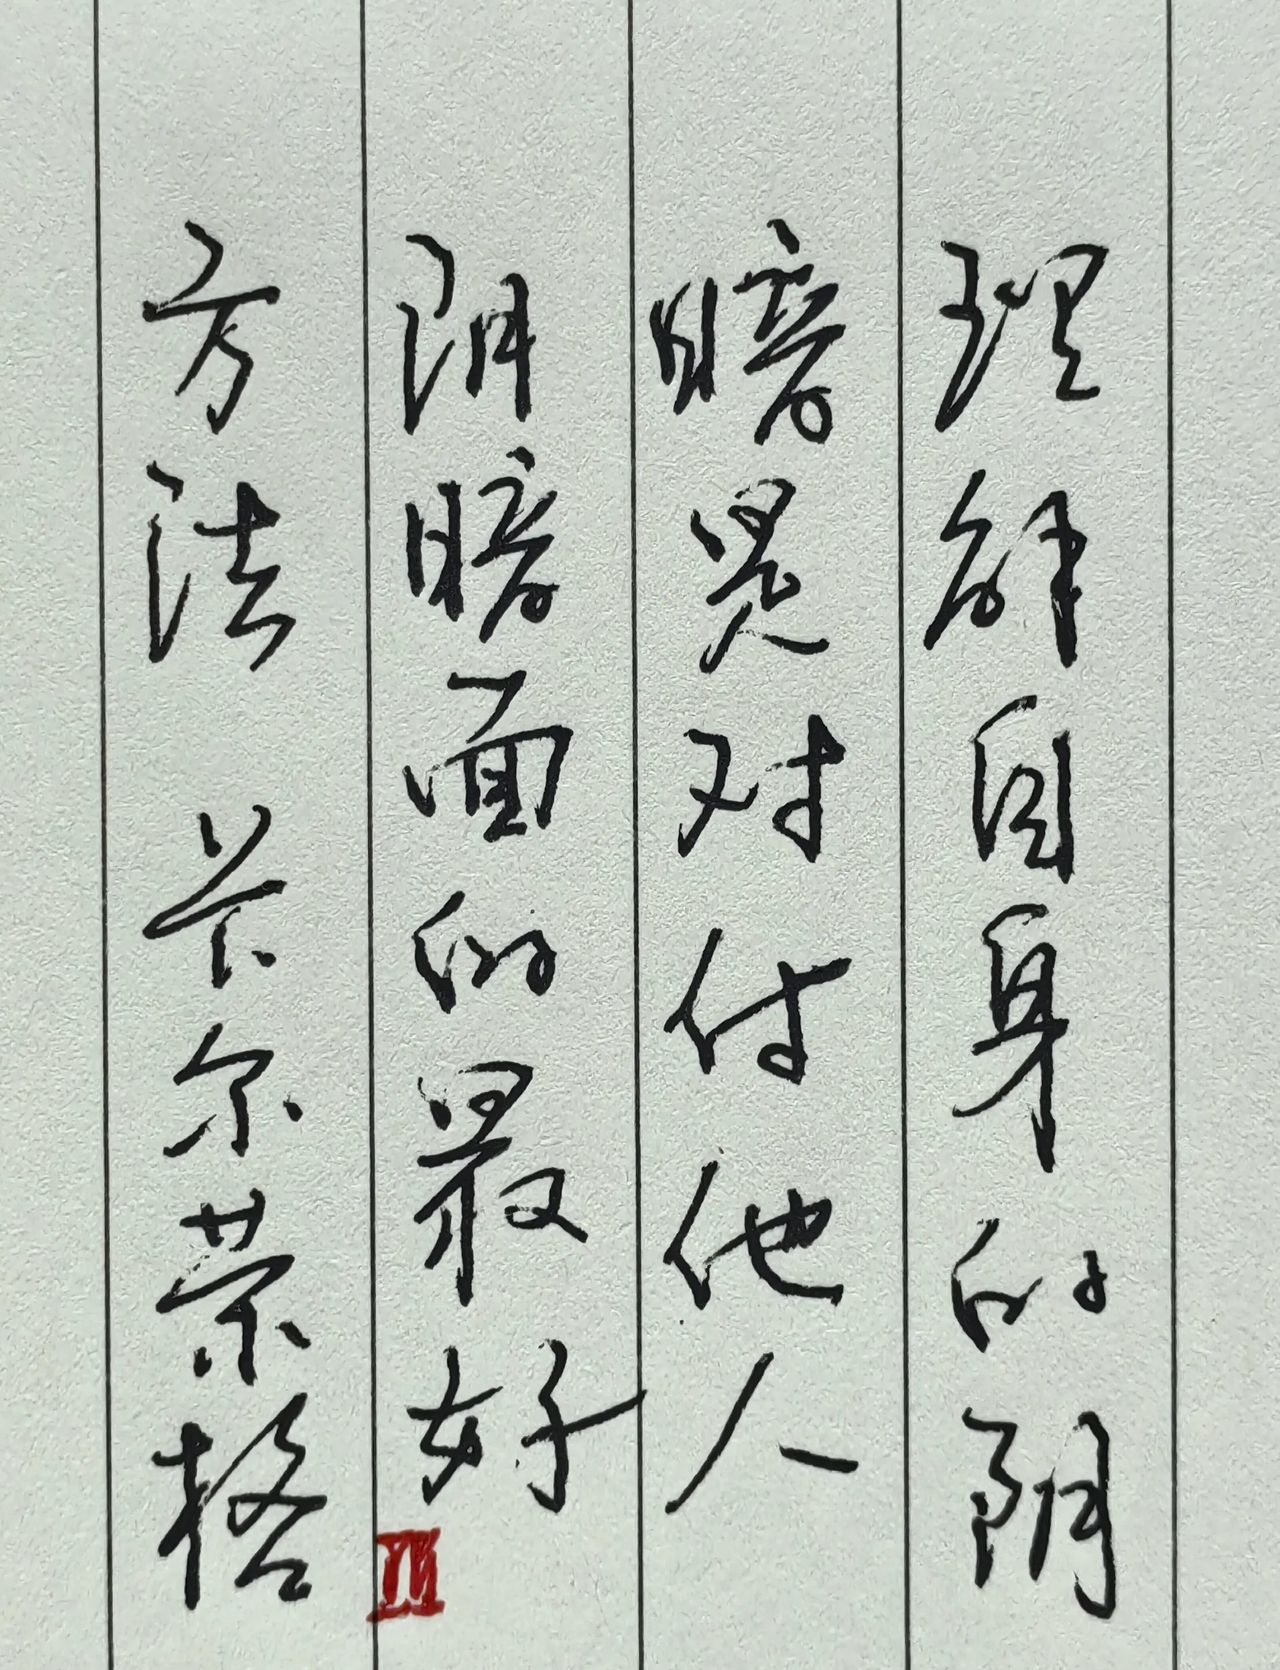 理解自身的阴
暗是对付他人
阴暗面的最好
方法 卡尔荣格